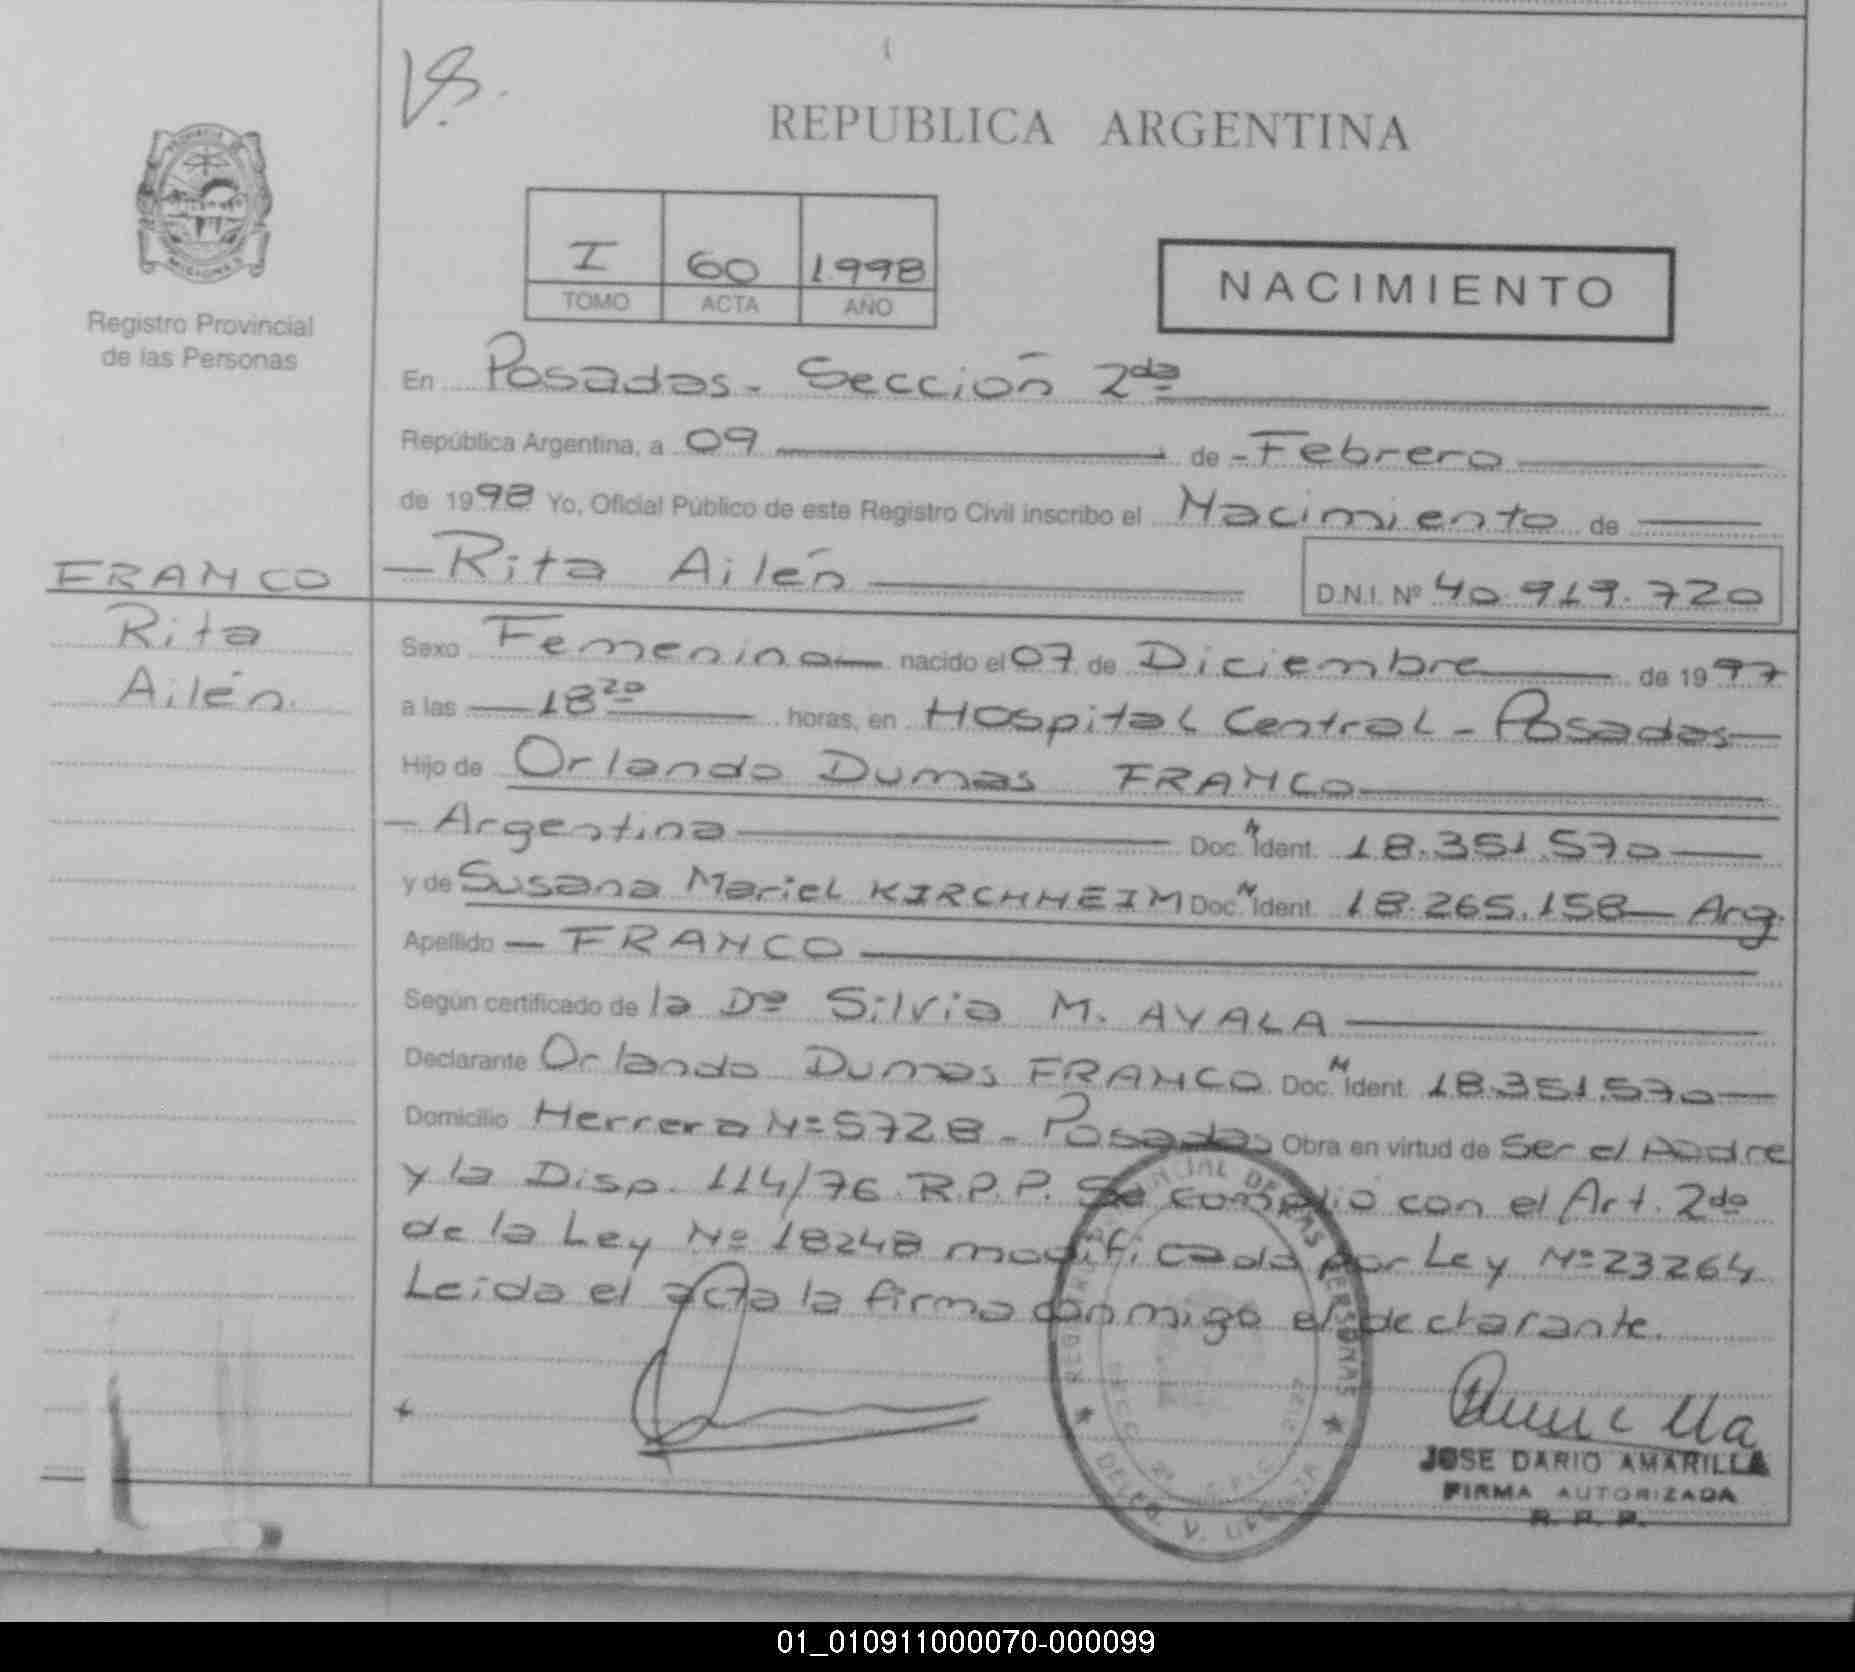 REPUBLICA ARGENTINA
I 60 1998
TOMO ACTA AÑO
NACIMIENTO
Registro Provincial
de las Personas
En Posadas - Sección 2da
República Argentina, a 09 de - Febrero
de 1998 Yo, Oficial Público de este Registro Civil inscribo el Nacimiento de
FRANCO
Rita
Ailén.
- Rita Ailén D.N.I. Nº 40.919.720
Sexo Femenino nacido el 07 de Diciembre de 1997
a las 18 20 horas, en Hospital Central - Posadas
Hijo de Orlando Dumas FRANCO
- Argentina Doc. N Ident. 18.351.570
y de Susana Mariel KIRCHHEIM Doc. N Ident. 18.265.158 - Arg.
Apellido - FRANCO
Según certificado de la Dra Silvia M. AYALA
Declarante Orlando Dumas FRANCO Doc. N Ident. 18.351.570
Domicilio Herrera Nº 5728 - Posadas Obra en virtud de Ser el Padre
y la Disp. 114/76 R.P.P. Se cumplió con el Art. 2do
de la Ley Nº 18248 modificada por Ley Nº 23264
Leída el acta la firma conmigo el declarante.
JOSE DARIO AMARILLA
FIRMA AUTORIZADA
R. P. P.
01_010911000070-000099